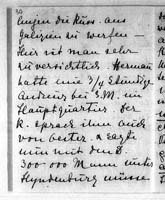 30
um die Russ. aus
Galizien zu werfen –
Hier ist man sehr
zuversichtlich. Herman
hatte eine 3/4 stündige
Audienz bei S.M. im
Hauptquartier. Der
K. sprach ihm auch
von bester u. sagte
nun mit den
300.000 Mann unter
Hyndenburg müsse